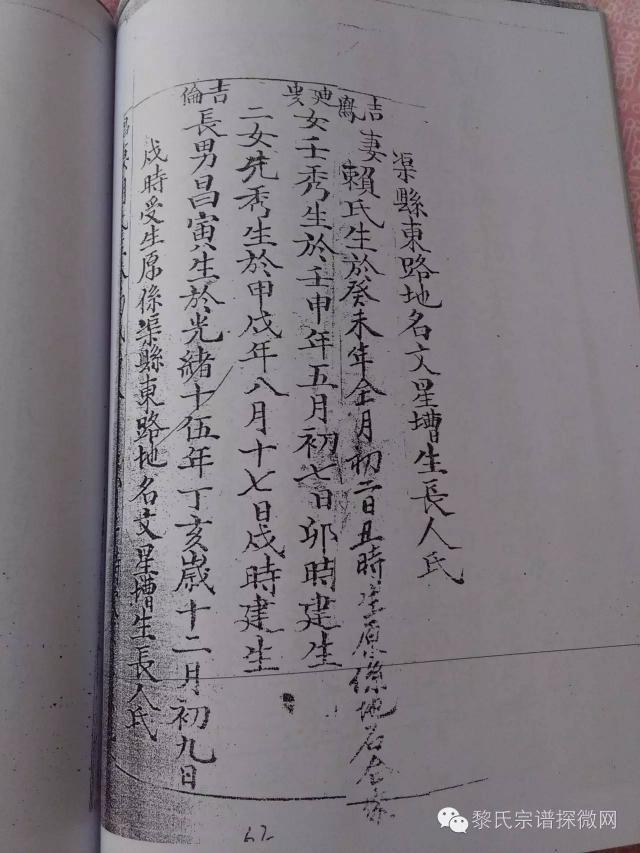 渠縣東路地名文星壋生長人氏
吉
妻賴氏生於癸未年全月初二日丑時生原係地名合
女壬秀生於壬申年五月初七日卯時建生
二女先秀生於甲戌年八月十七日戌時建生
吉倫
長男昌寅生於光緒十伍年丁亥歲十二月初九日
戌時受生原係渠縣東路地名文星壋生長人氏
62
黎氏宗谱探微网